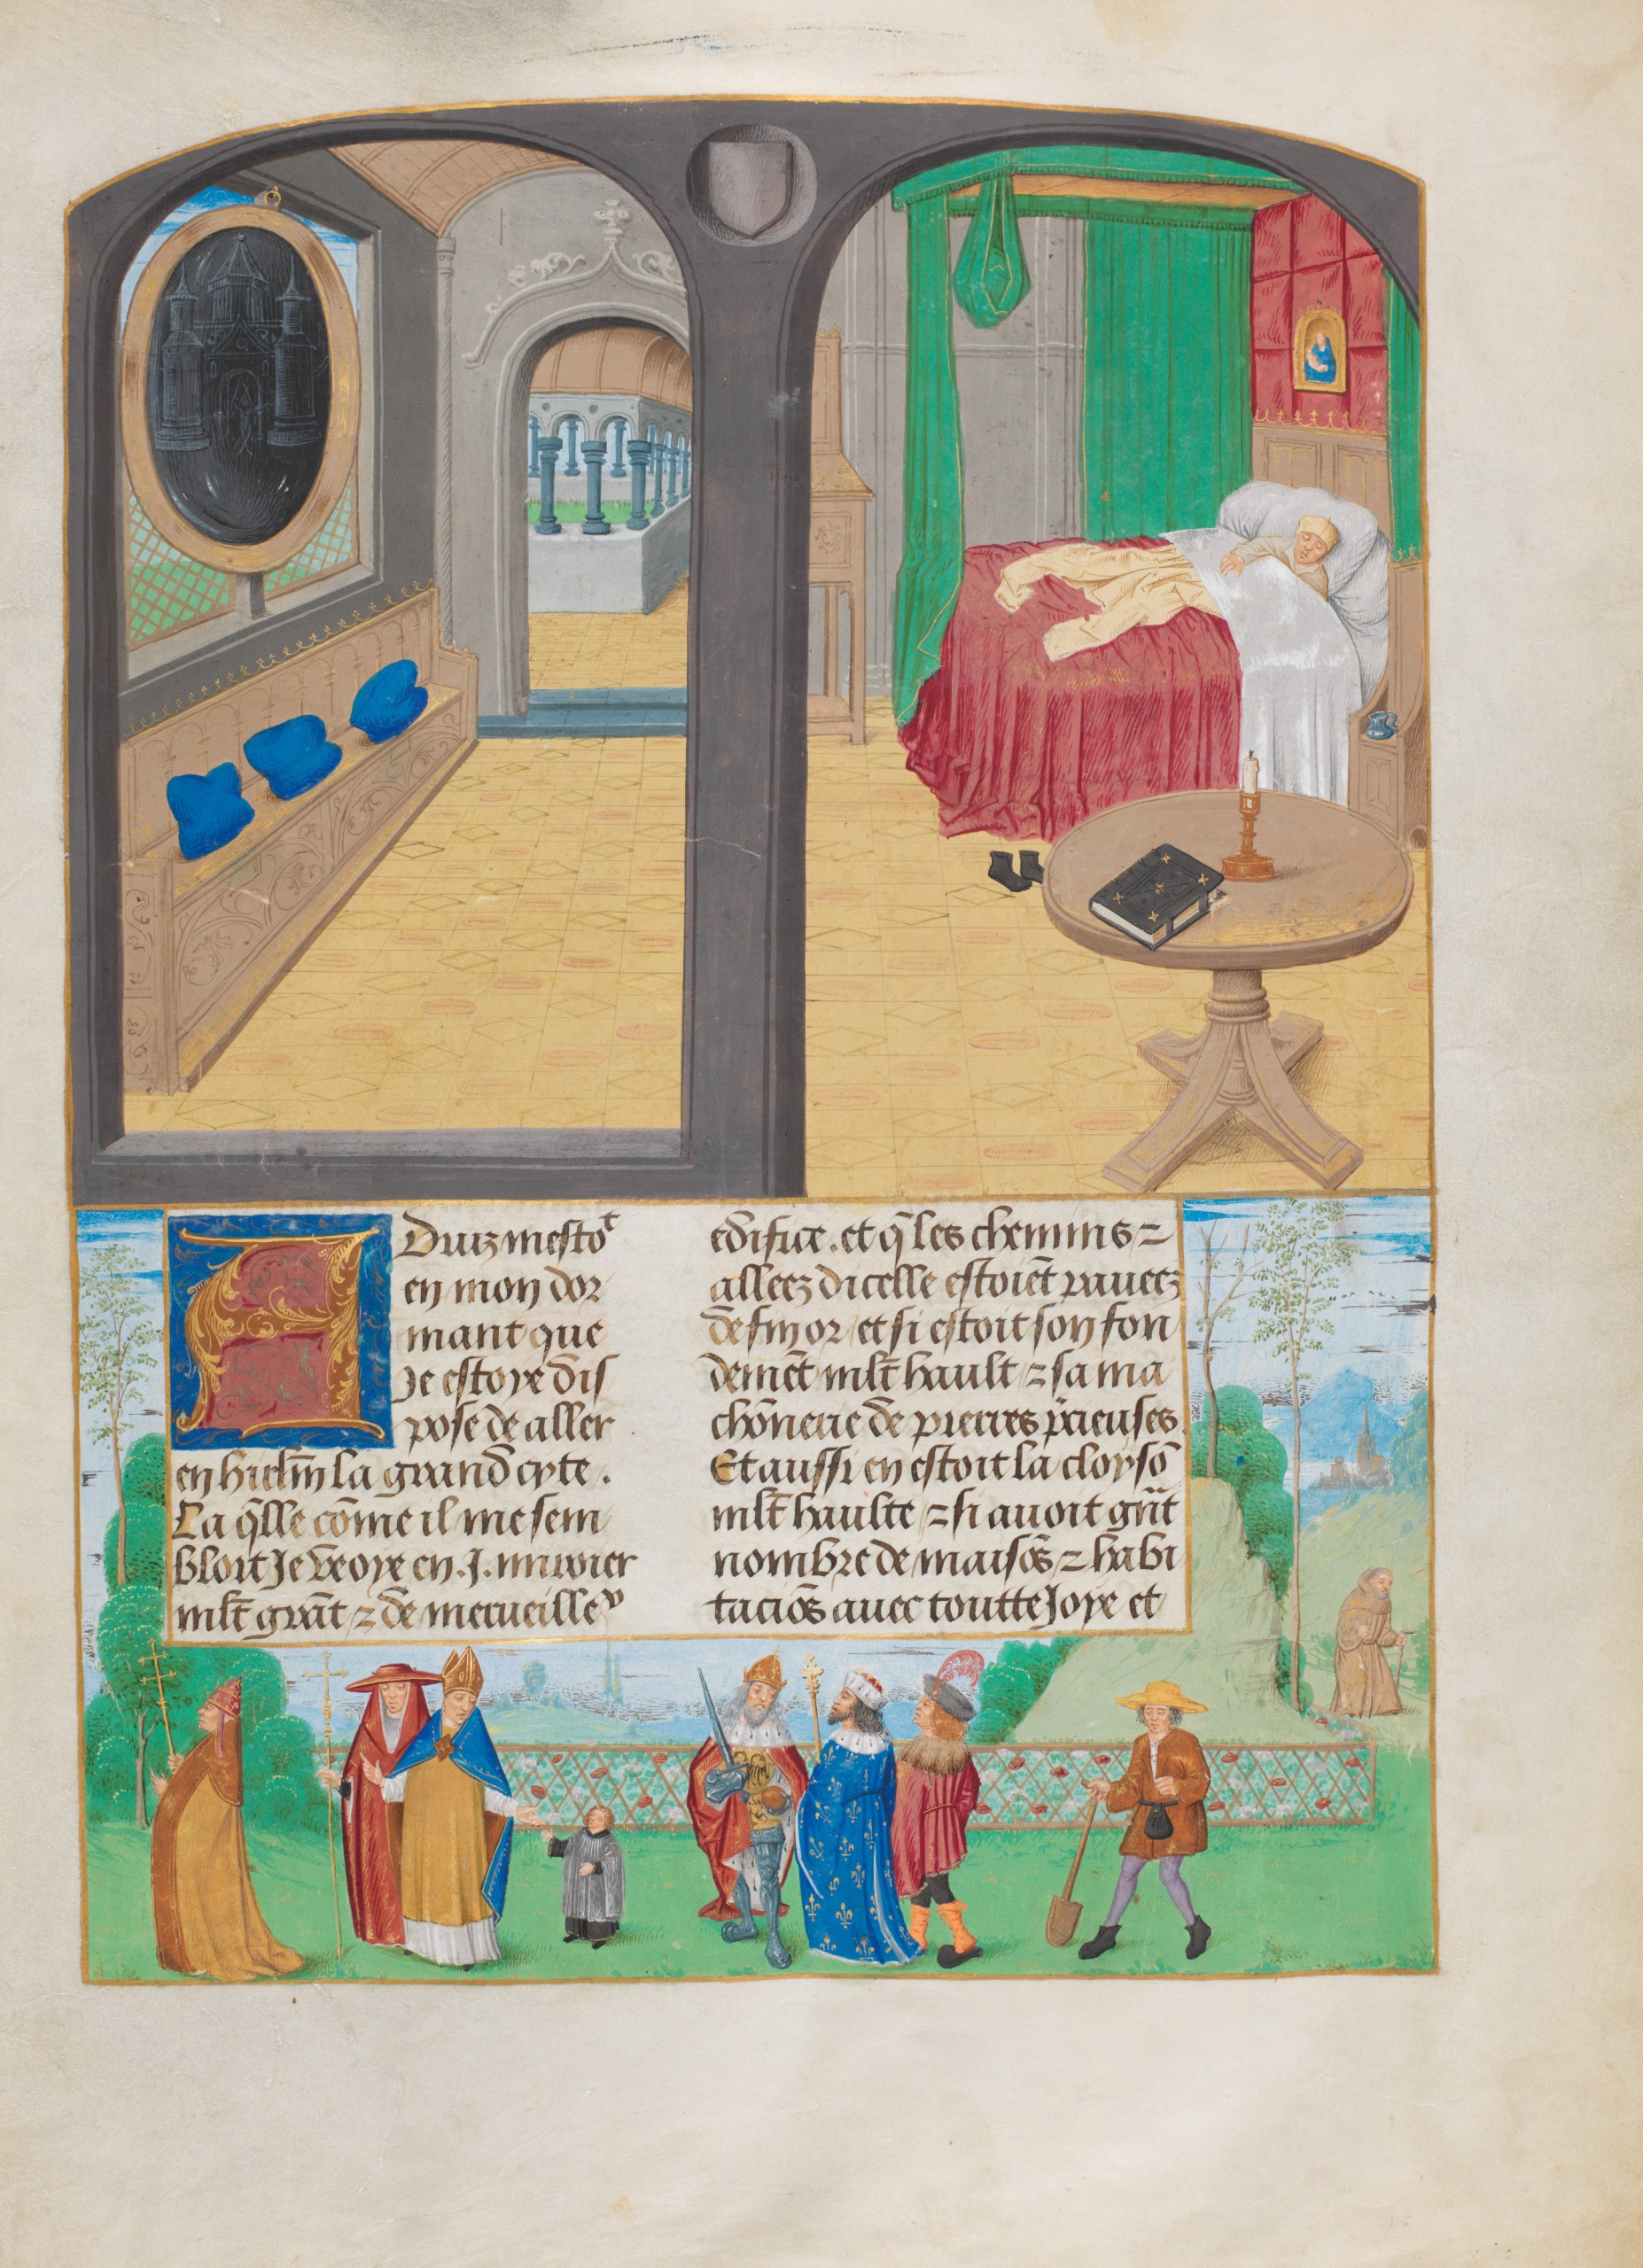 ADuiz mestoᵗ
en mon dor
mant que
Je estoye dis
pose de aller
en hirlm̄ la grand cyte.
La q̄lle cōme il me sem
bloit Je veoye en .J. miroier
mlt̄ grāt ⁊ de merueilleꝰ
edifice. et q̄ les chemins ⁊
alleez dicelle estoiēt paueez
de fin or / et si estoit son fon
demēt mlt̄ hault ⁊ sa ma
chōnerie de pierres p̄cieuses
Et aussi en estoit la cloysō
mlt̄ haulte ⁊ si auoit grāt
nombre de maisōs ⁊ habi
taciōs auec toutte Joye et